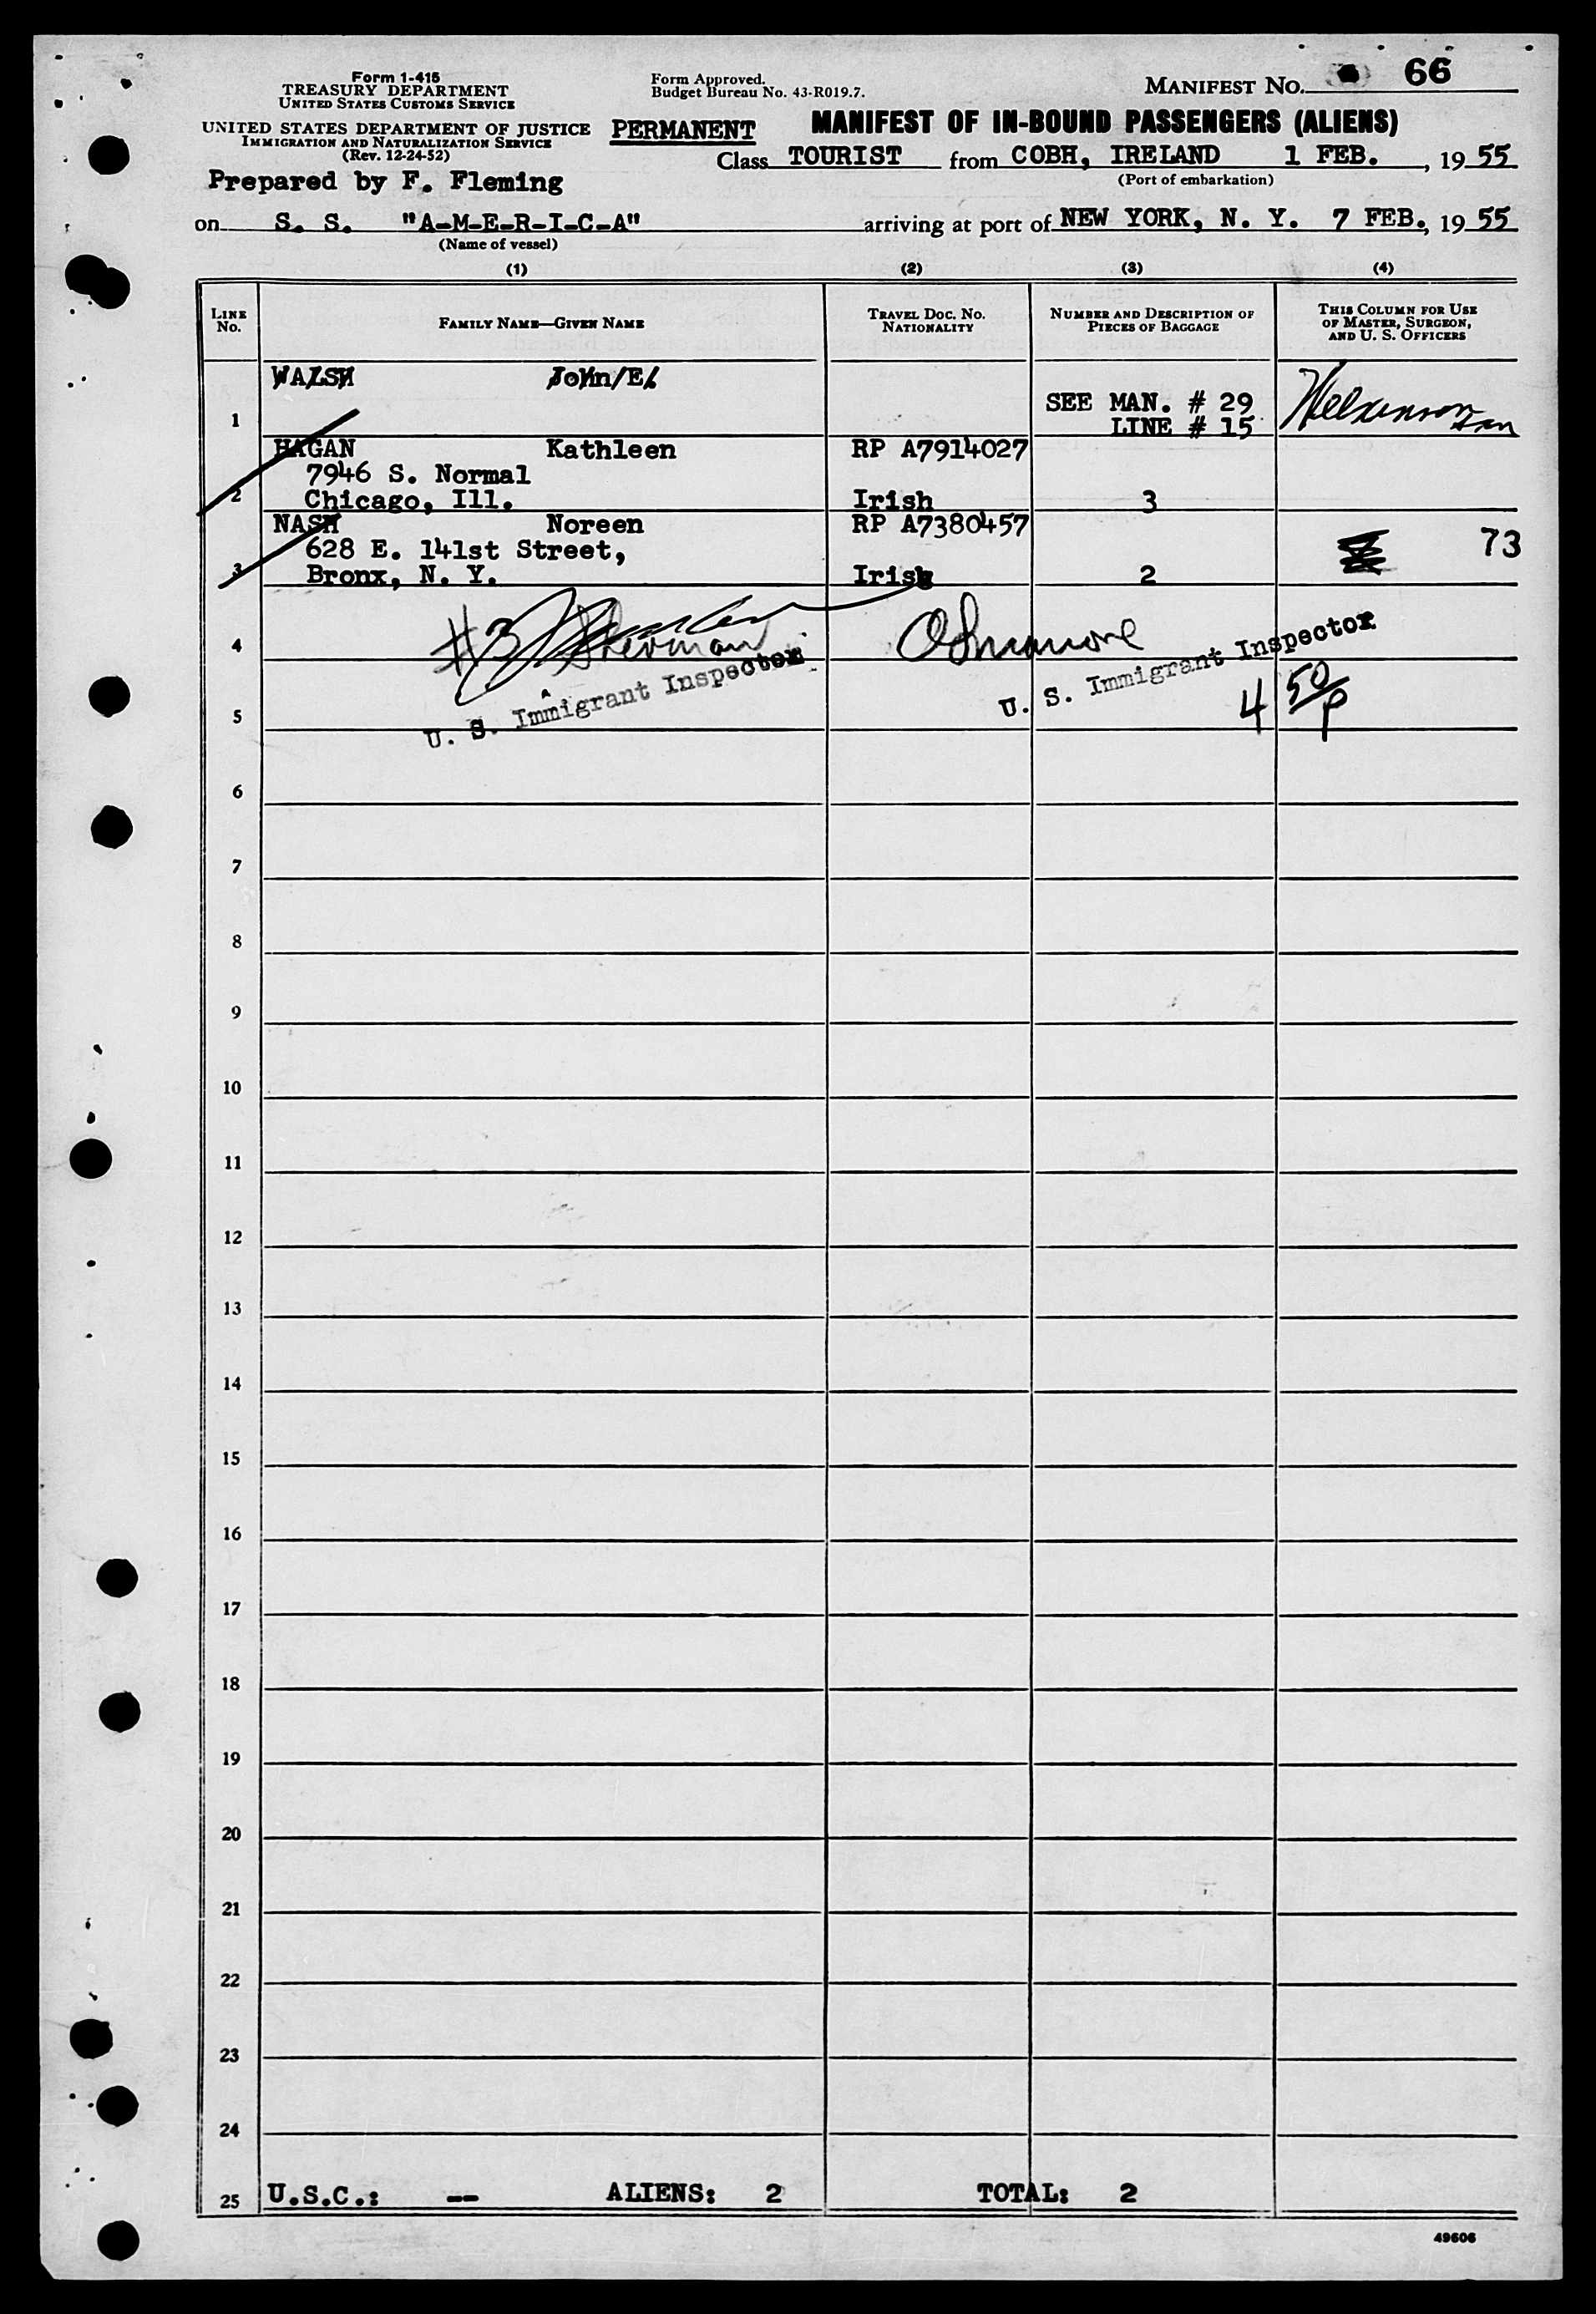 Form 1-415
TREASURY DEPARTMENT
UNITED STATES CUSTOMS SERVICE
UNITED STATES DEPARTMENT OF JUSTICE
IMMIGRATION AND NATURALIZATION SERVICE
(Rev. 12-24-52)
Form Approved.
Budget Bureau No. 43-R019.7.
MANIFEST No. 66
PERMANENT
MANIFEST OF IN-BOUND PASSENGERS (ALIENS)
Class TOURIST from COBH, IRELAND 1 FEB., 19 55
(Port of embarkation)
Prepared by F. Fleming
on S. S. "A-M-E-R-I-C-A" arriving at port of NEW YORK, N. Y. 7 FEB., 19 55
(Name of vessel)
(1) (2) (3) (4)
LINE No. FAMILY NAME—GIVEN NAME TRAVEL DOC. No. NATIONALITY NUMBER AND DESCRIPTION OF PIECES OF BAGGAGE THIS COLUMN FOR USE OF MASTER, SURGEON, AND U. S. OFFICERS
WALSH John/E/
1 SEE MAN. # 29
LINE # 15
HAGAN Kathleen RP A7914027
7946 S. Normal
2 Chicago, Ill. Irish 3
NASH Noreen RP A7380457
628 E. 141st Street, 73
3 Bronx, N. Y. Irish 2
#3
4
U. S. Immigrant Inspector U. S. Immigrant Inspector
5 4 50/P
6
7
8
9
10
11
12
13
14
15
16
17
18
19
20
21
22
23
24
25 U.S.C.: -- ALIENS: 2 TOTAL: 2
49606